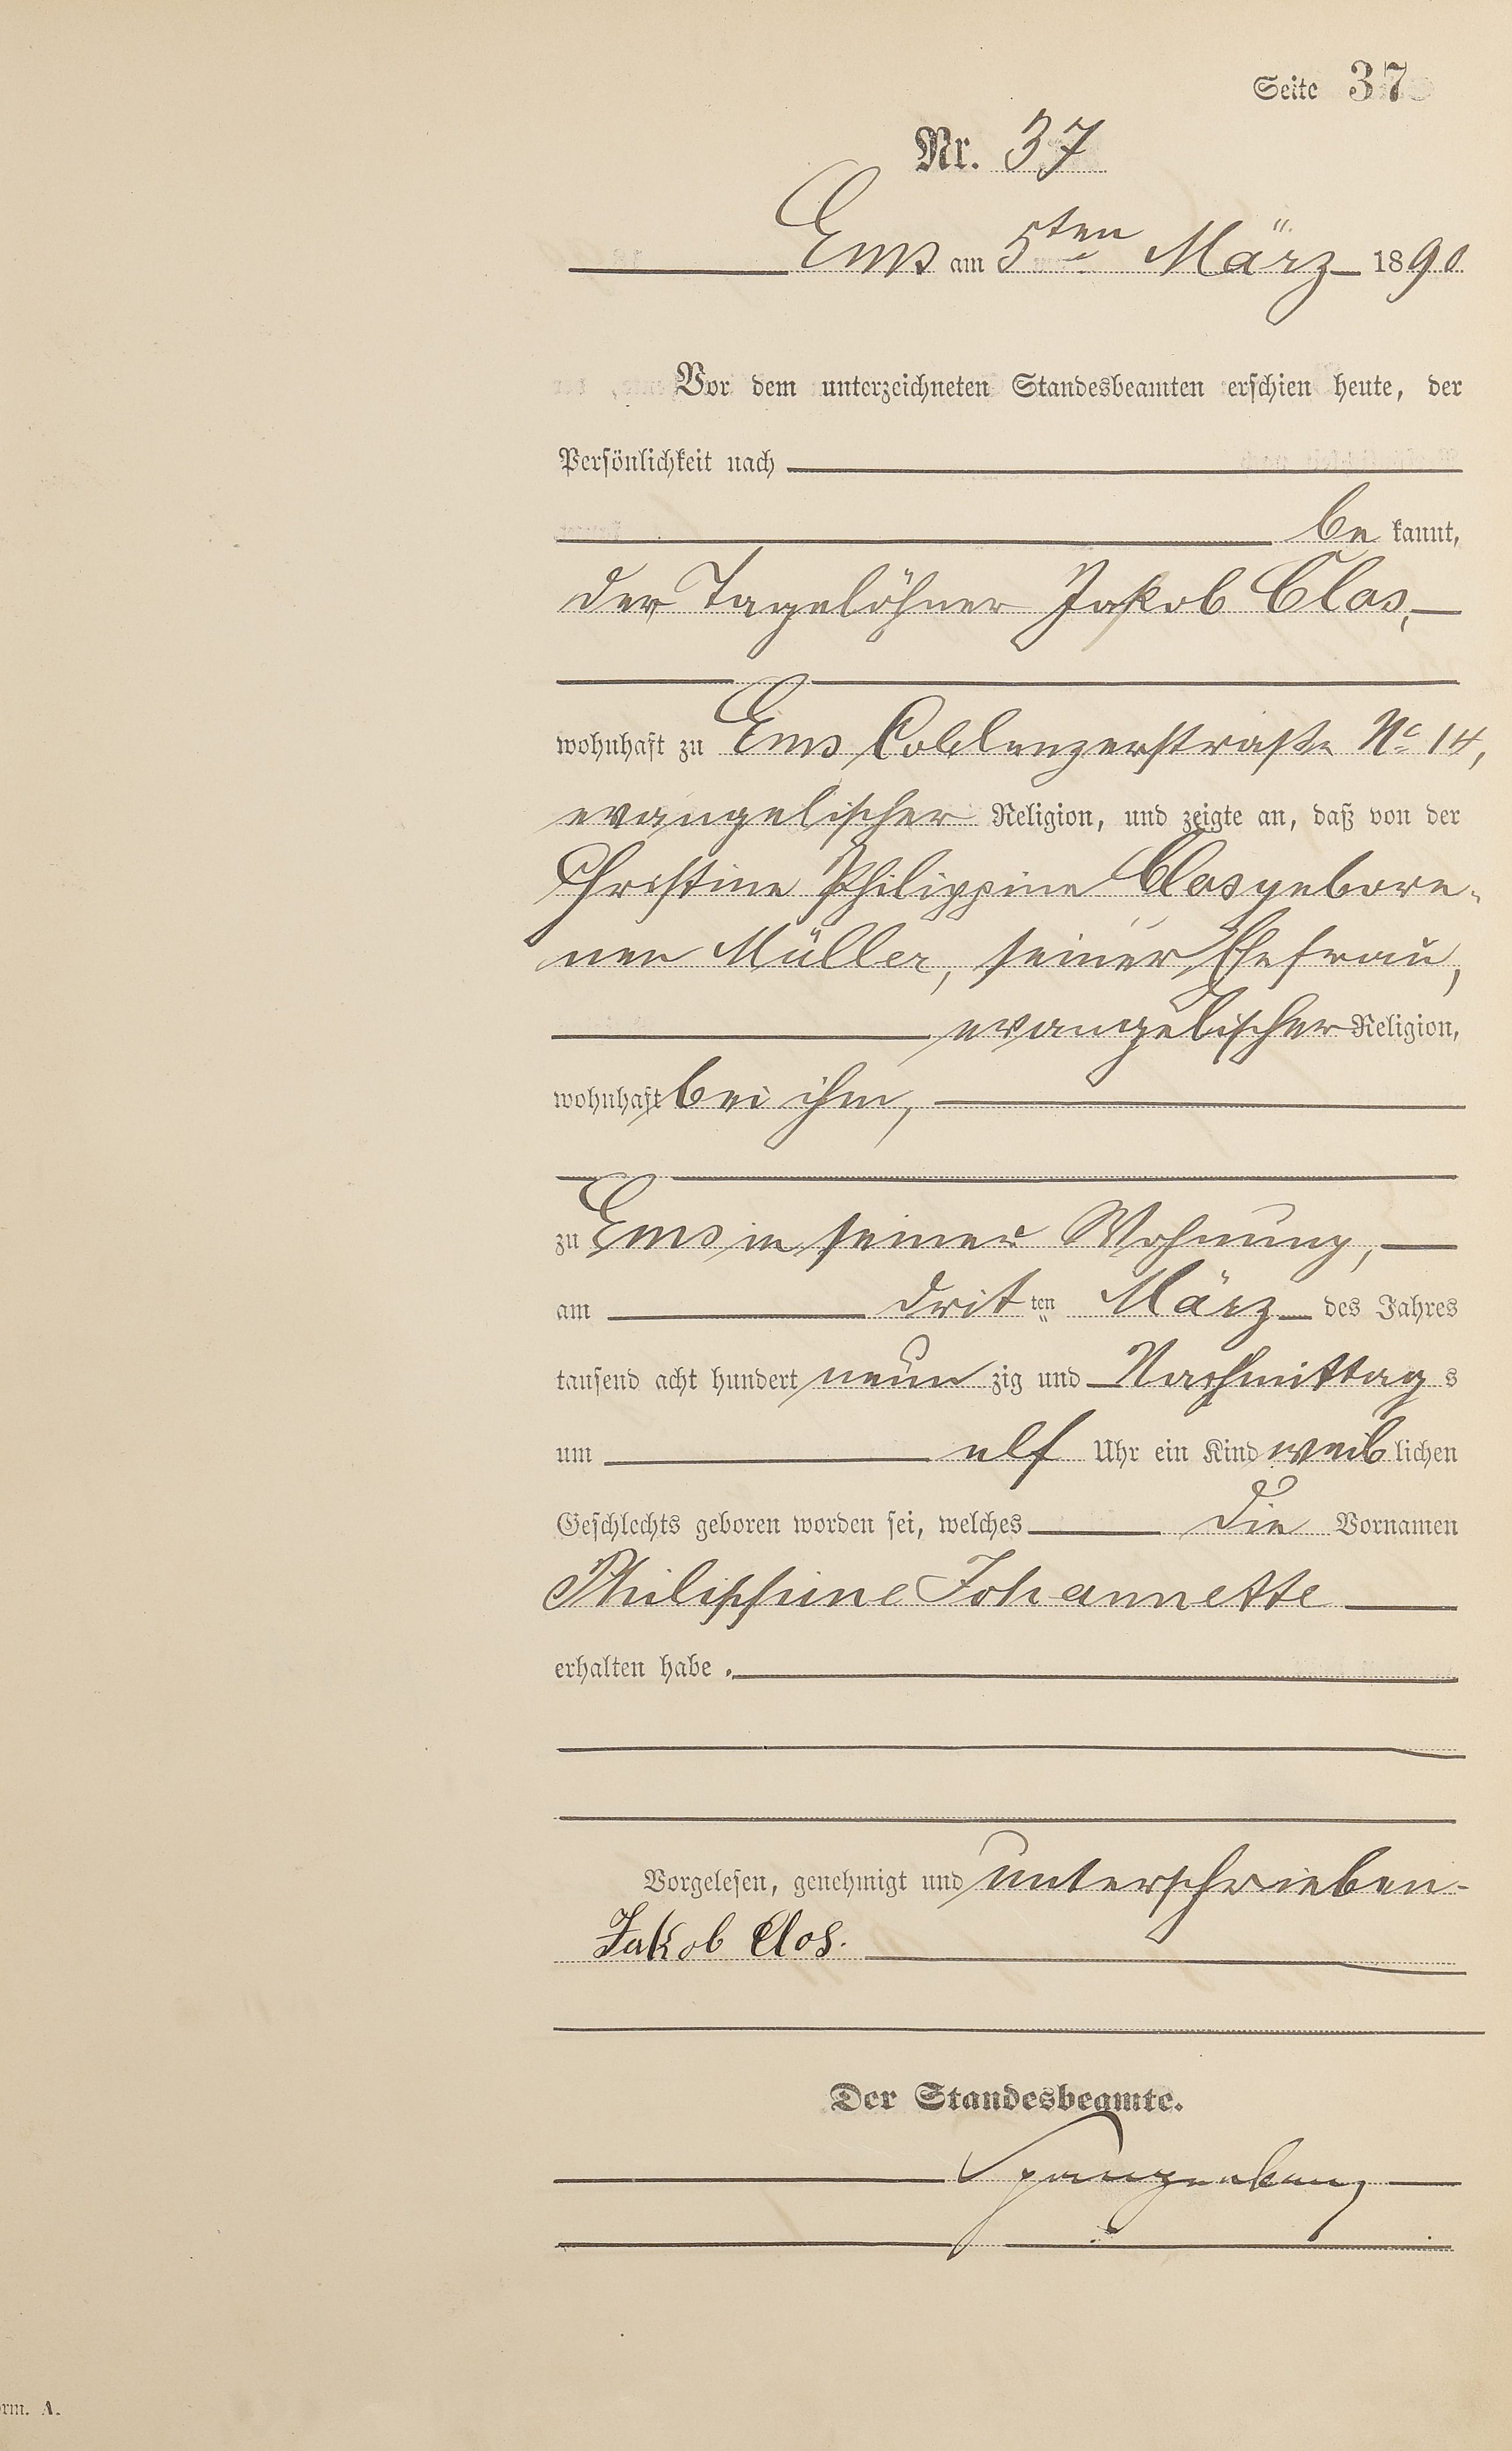 Seite 37
Nr. 37
Ems am 5ten März 1890
Vor dem unterzeichneten Standesbeamten erschien heute, der
Persönlichkeit nach
be kannt,
der Tagelöhner Jakob Clos,
wohnhaft zu Ems Coblenzerstraße No 14,
evangelischer Religion, und zeigte an, daß von der
Christine Philippine Clos gebore-
nen Müller, seiner Ehefrau,
evangelischer Religion,
wohnhaft bei ihm,
zu Ems in seiner Wohnung,
am dritten März des Jahres
tausend acht hundert neun zig und Nachmittags
um elf Uhr ein Kind weiblichen
Geschlechts geboren worden sei, welches die Vornamen
Philippine Johannette
erhalten habe.
Vorgelesen, genehmigt und unterschrieben
Jakob Clos.
Der Standesbeamte.
orm. A.